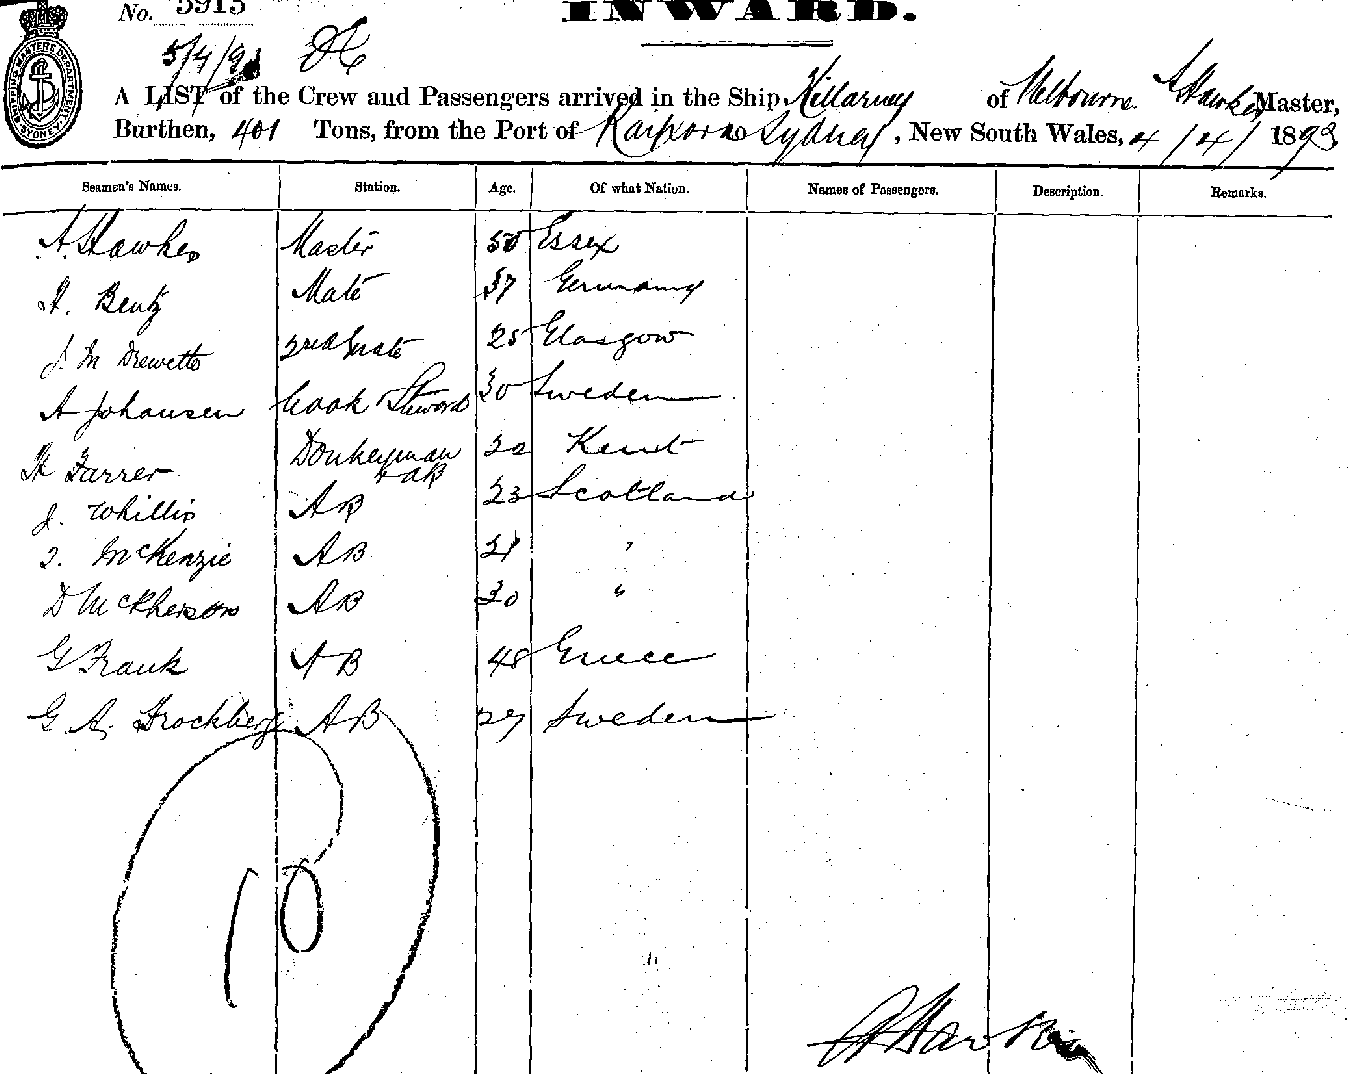 No. 5915
INWARD.
5/4/93
A LIST of the Crew and Passengers arrived in the Ship Killarney of Melbourne A Hawkes Master,
Burthen, 401 Tons, from the Port of to Sydney, New South Wales, 4/4/1893
Seamen's Names. Station. Age. Of what Nation. Names of Passengers. Description. Remarks.
A. Hawkes Master 50 Essex
H. Bentz Mate 37 Germany
J. M Drewette 2nd Mate 25 Glasgow
A Johansen Cook Steward 30 Sweden
H Farrer Donkeyman & AB Kent
J. Whillis AB 23 Scotland
McKenzie AB 21 "
D McPherson AB 30 "
G Frank AB 48 Greece
G A. AB 27 Sweden
10
A Hawkes